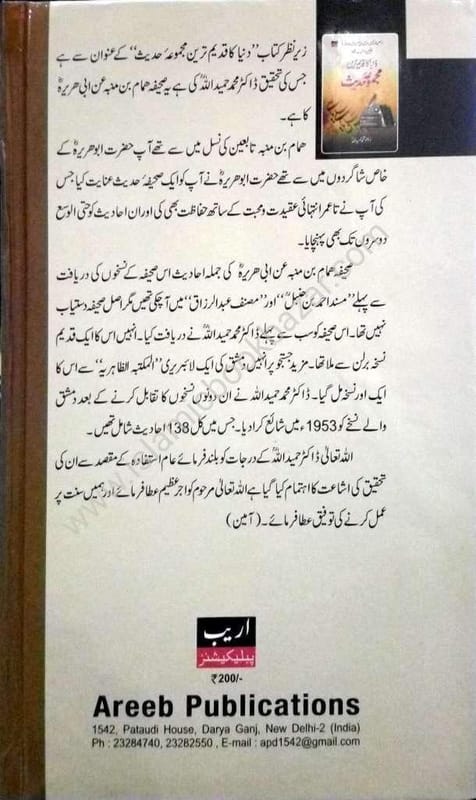 زیرِ نظر کتاب ”دنیا کا قدیم ترین مجموعۂ حدیث“ کے عنوان سے ہے
جس کی تحقیق ڈاکٹر محمد حمید اللہؒ کی ہے یہ صحیفہ ھمام بن منبہ عن ابی ھریرہؓ
کا ہے۔
ھمام بن منبہ تابعین کی نسل میں سے تھے آپ حضرت ابوھریرہؓ کے
خاص شاگردوں میں سے تھے حضرت ابوھریرہؓ نے آپ کو ایک صحیفۂ حدیث عنایت کیا جس
کی آپ نے تاعمر انتہائی عقیدت و محبت کے ساتھ حفاظت بھی کی اور ان احادیث کو حتی الوسع
دوسروں تک بھی پہنچایا۔
صحیفہ ھمام بن منبہ عن ابی ھریرہؓ کی جملہ احادیث اس صحیفہ کے نسخوں کی دریافت
سے پہلے ”مسند احمد بن حنبلؒ“ اور ”مصنف عبدالرزاق“ میں آچکی تھیں مگر اصل صحیفہ دستیاب
نہیں تھا۔ اس صحیفہ کو سب سے پہلے ڈاکٹر محمد حمید اللہؒ نے دریافت کیا۔ انہیں اس کا ایک قدیم
نسخہ برلن سے ملا تھا۔ مزید جستجو پر انہیں دمشق کی ایک لائبریری ”المکتبہ الظاہریہ“ سے اس کا
ایک اور نسخہ مل گیا۔ ڈاکٹر محمد حمید اللہ نے ان دونوں نسخوں کا تقابل کرنے کے بعد دمشق
والے نسخے کو 1953ء میں شائع کرا دیا۔ جس میں کل 138 احادیث شامل تھیں۔
اللہ تعالیٰ ڈاکٹر حمید اللہؒ کے درجات کو بلند فرمائے عام استفادہ کے مقصد سے ان کی
تحقیق کی اشاعت کا اہتمام کیا گیا ہے اللہ تعالیٰ مرحوم کو اجر عظیم عطا فرمائے اور ہمیں سنت پر
عمل کرنے کی توفیق عطا فرمائے۔ (آمین)
اریب
پبلیکیشنز
₹200/-
Areeb Publications
1542, Pataudi House, Darya Ganj, New Delhi-2 (India)
Ph : 23284740, 23282550 , E-mail : apd1542@gmail.com
www.islamicbookbazaar.com